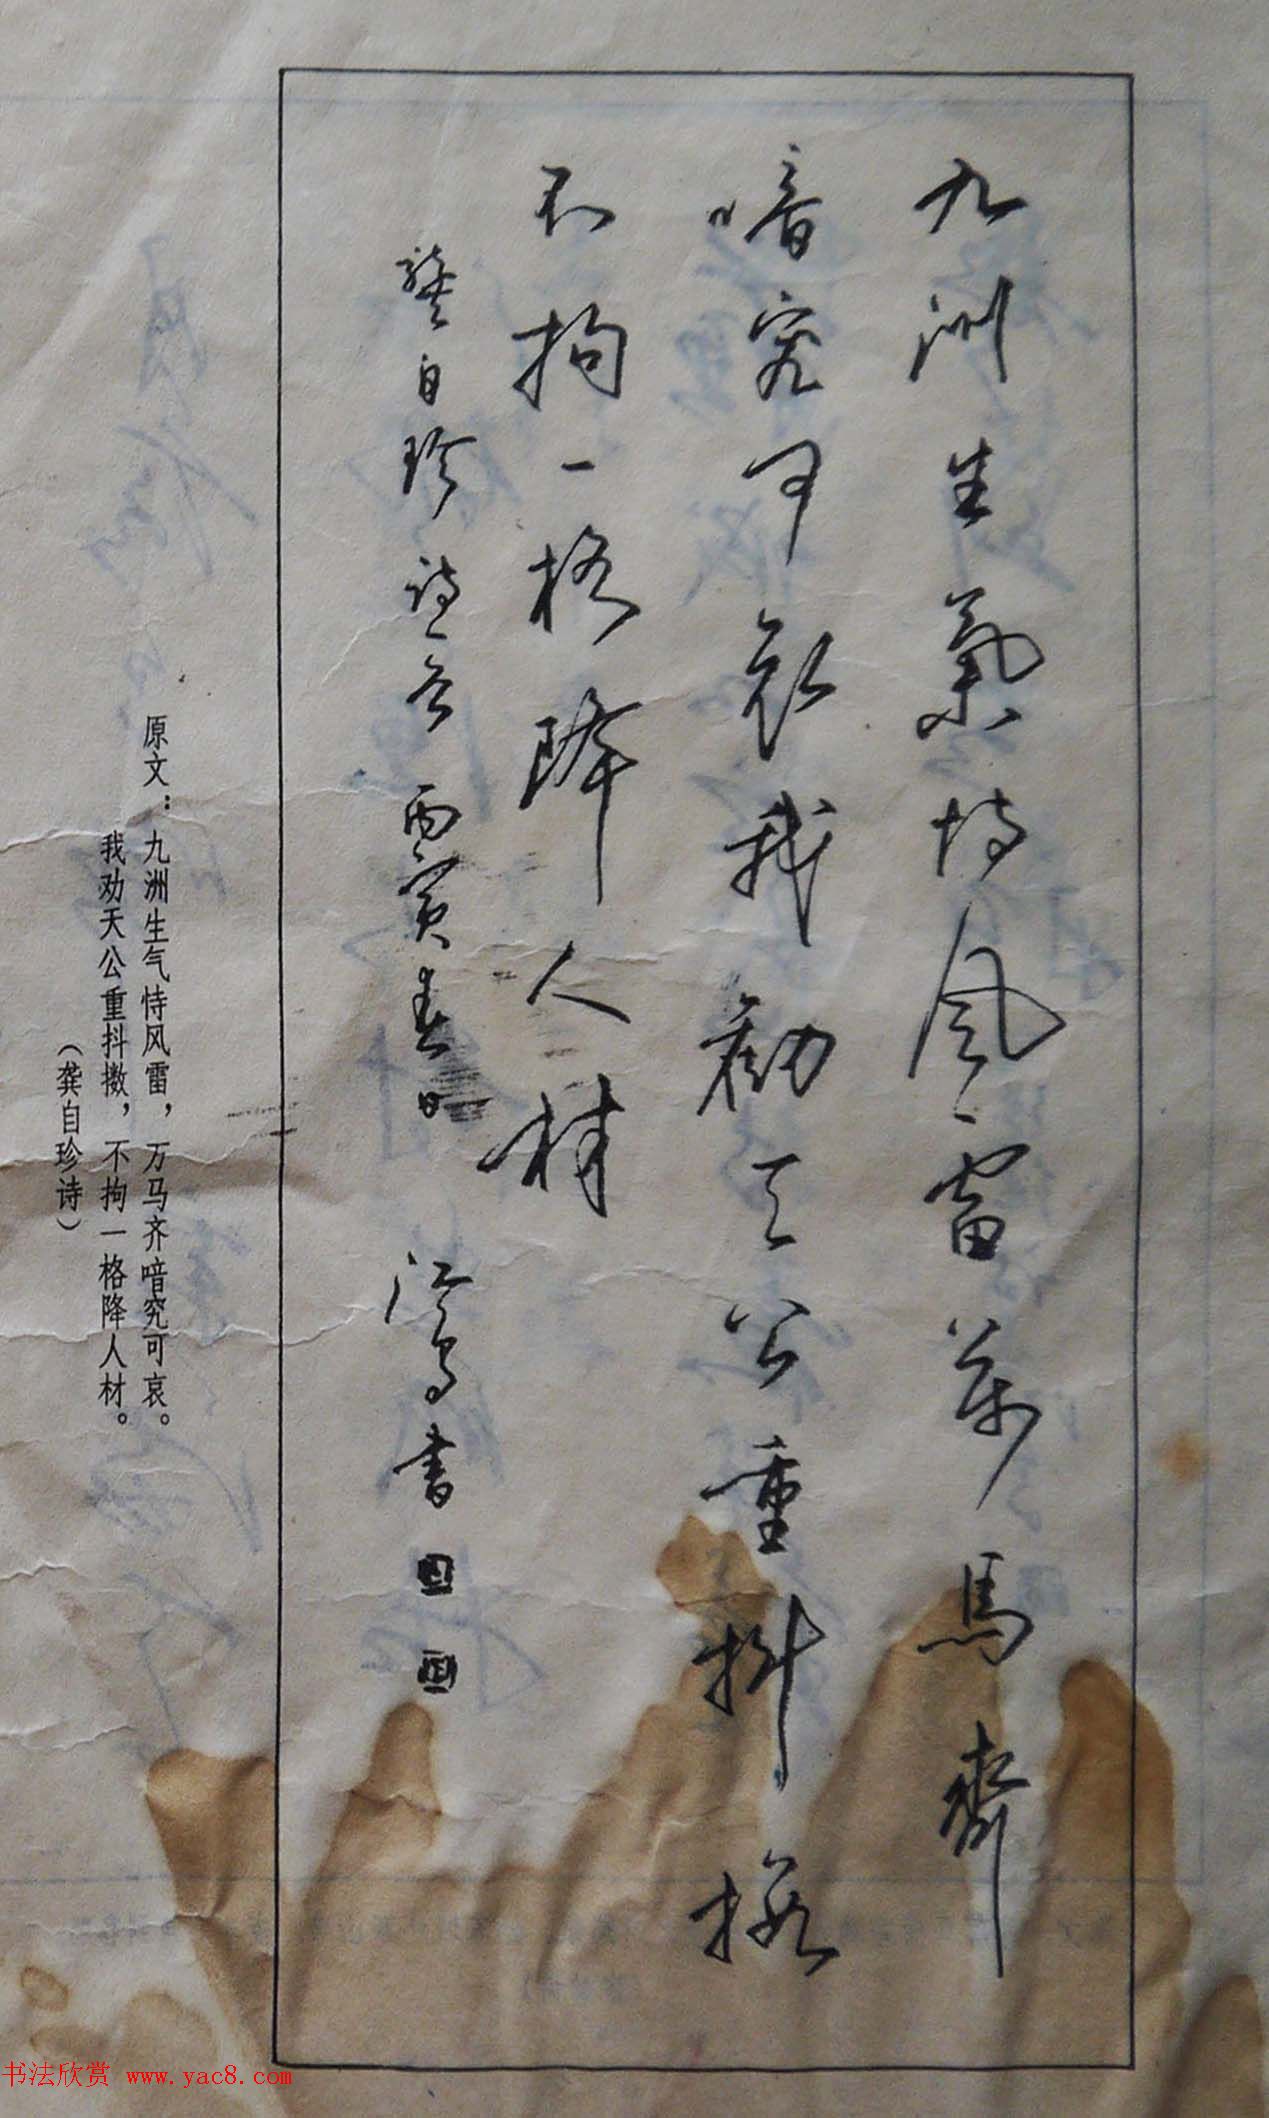 九洲生氣恃風雷萬馬齊
喑究可哀我勸天公重抖擻
不拘一格降人材
龔自珍詩一首 丙寅春日 江鸟書
原文：九洲生气恃风雷，万马齐喑究可哀。
我劝天公重抖擞，不拘一格降人材。
（龚自珍诗）
书法欣赏 www.yac8.com